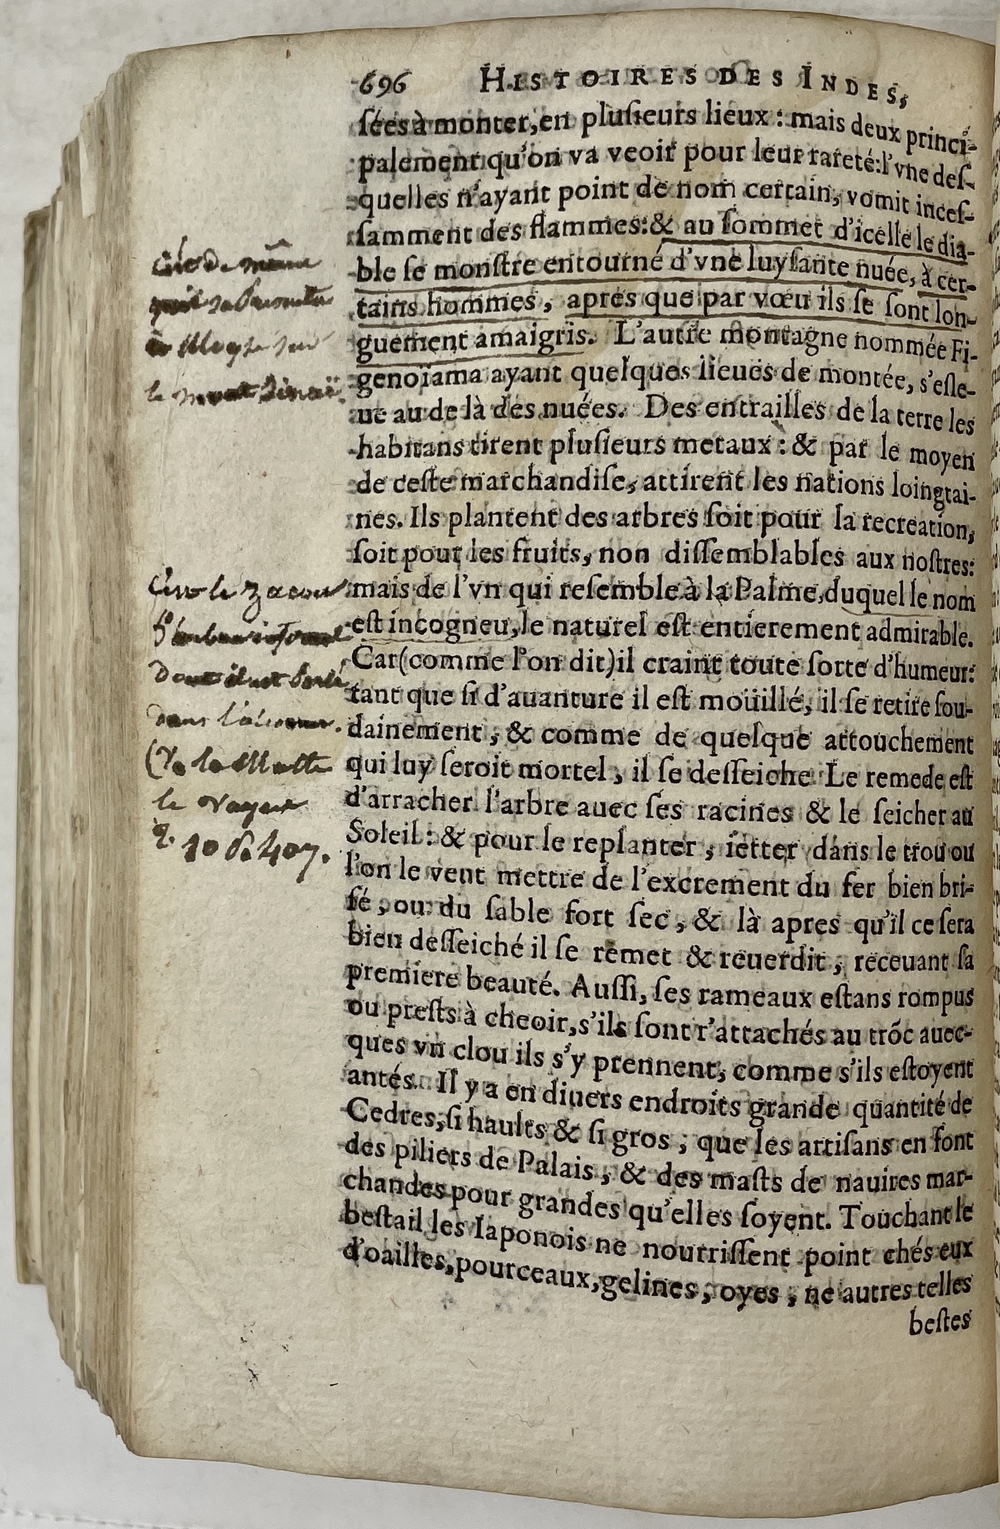 696 HISTOIRES DES INDES,
ſées à monter, en pluſieurs lieux : mais deux princi-
palement qu'on va veoir pour leur rareté: l'vne deſ-
quelles n'ayant point de nom certain, vomit inceſ-
ſamment des flammes: & au ſommet d'icelle le dia-
ble ſe monſtre entourné d'vne luyſante nuée, à cer-
tains hommes, apres que par vœu ils ſe ſont lon-
guement amaigris. L'autre montagne nommée Fi-
genoiama ayant quelques lieuës de montée, s'eſle-
ue au de là des nuées. Des entrailles de la terre les
habitans tirent pluſieurs metaux : & par le moyen
de ceſte marchandiſe, attirent les nations loingtai-
nes. Ils plantent des arbres ſoit pour la recreation,
ſoit pour les fruits, non diſſemblables aux noſtres:
mais de l'vn qui reſemble à la Palme, duquel le nom
eſt incogneu, le naturel eſt entierement admirable.
Car (comme l'on dit) il craint toute ſorte d'humeur:
tant que ſi d'auanture il eſt moüillé, il ſe retire ſou-
dainement, & comme de quelque attouchement
qui luy ſeroit mortel, il ſe deſſeiche. Le remede eſt
d'arracher l'arbre auec ſes racines & le ſeicher au
Soleil : & pour le replanter, ietter dans le trou ou
l'on le veut mettre de l'excrement du fer bien bri-
ſé, ou du ſable fort ſec, & là apres qu'il ce ſera
bien deſſeiché il ſe remet & reuerdit, receuant ſa
premiere beauté. Auſſi, ſes rameaux eſtans rompus
ou preſts à cheoir, s'ils ſont r'attachés au trõc auec-
ques vn clou ils s'y prennent, comme s'ils eſtoyent
antés. Il y a en diuers endroits grande quantité de
Cedres, ſi haults & ſi gros, que les artiſans en font
des piliers de Palais, & des maſts de nauires mar-
chandes pour grandes qu'elles ſoyent. Touchant le
beſtail les Iaponois ne nourriſſent point chés eux
d'oailles, pourceaux, gelines, oyes, ne autres telles
beſtes
de même
ſur
le mont Sinaï.
le
dans
le
10 407.